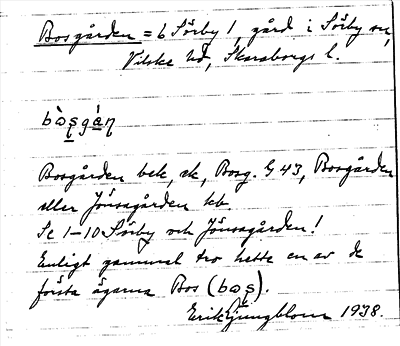 Bosgården = 6 Sörby 1, gård i Sörby sn,
Vilske hd, Skaraborgs l.
bo̱sga̱ṇ
Bosgården bek, ek, Borg. G 43, Bosgården
eller Jönsagården tab.
Se 1-10 Sörby och Jönsagården!
Enligt gammal tro hette en av de
första ägarna Bos (bos).
Erik Ljungblom 1938.